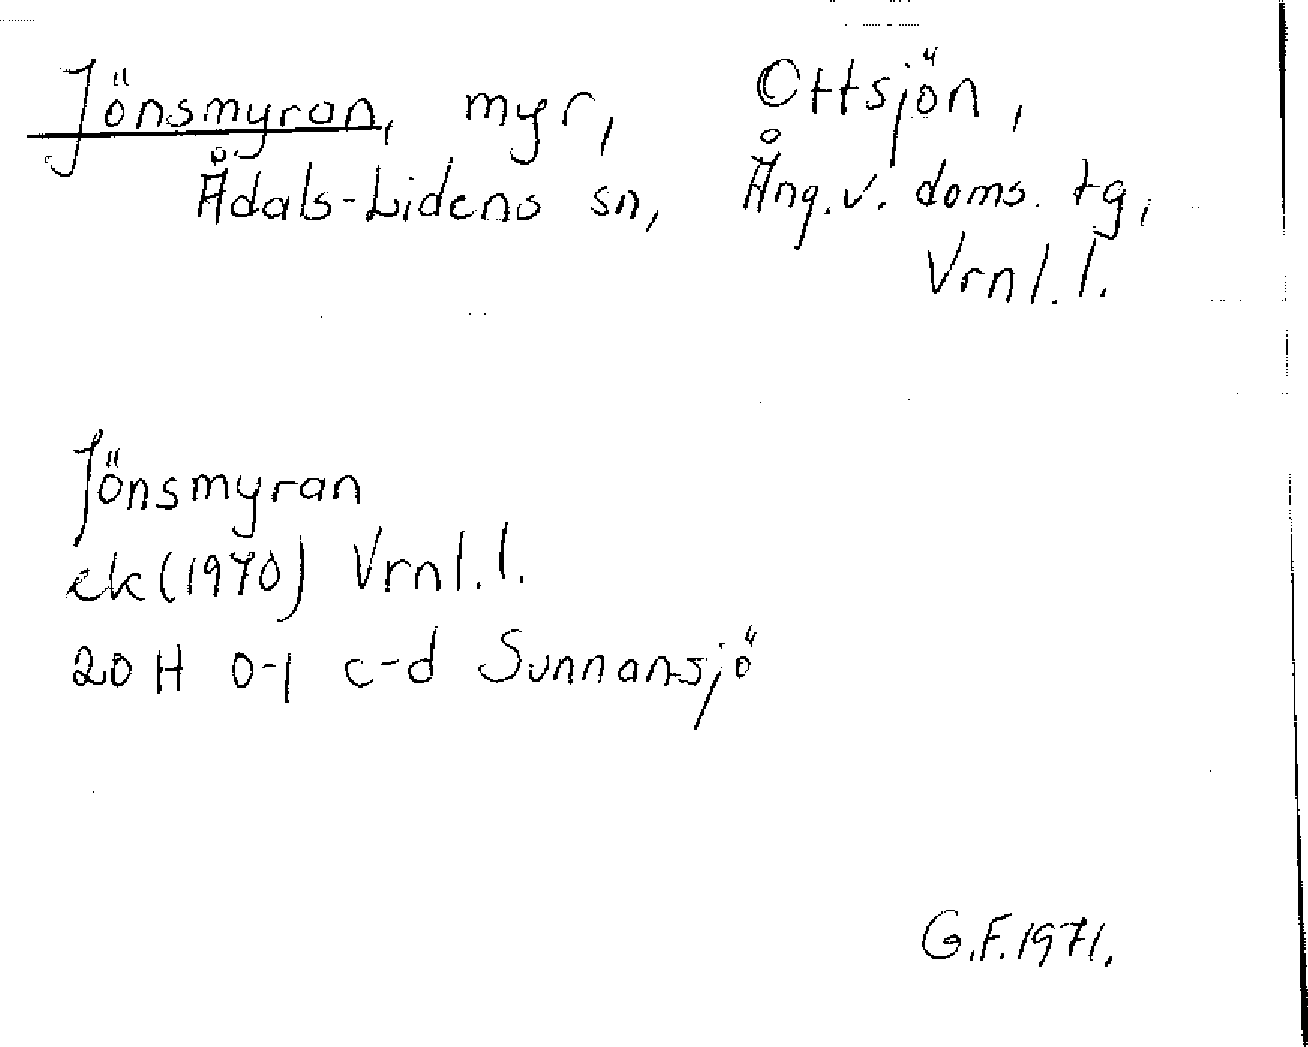 Jönsmyran, myr, Ottsjön,
Ådals-Lidens sn, Ång.v. doms. tg,
Vrnl.l.
Jönsmyran
ek (1970) Vrnl.l.
20 H 0-1 c-d Sunnansjö
G.F. 1971.